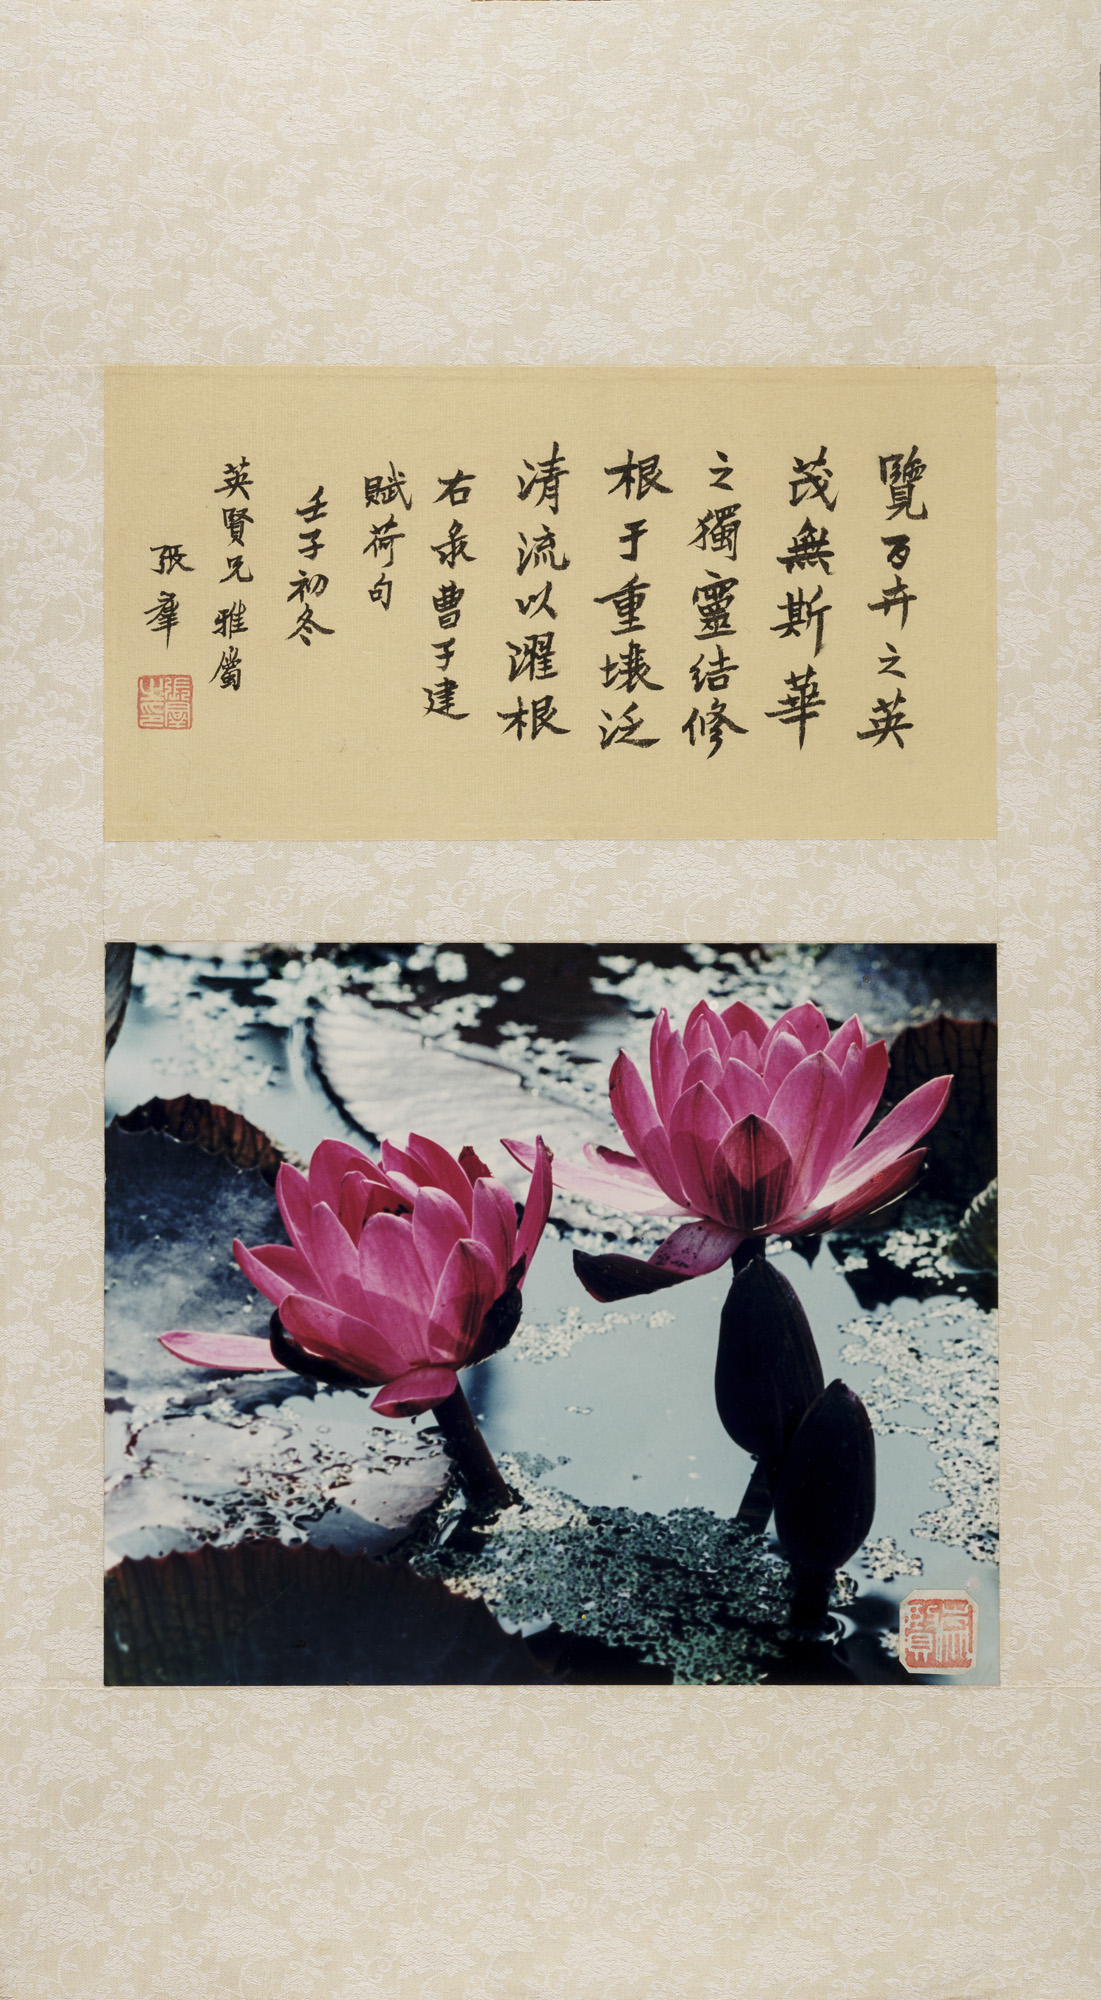 覽百卉之英
茂無斯華
之獨靈結修
根于重壤泛
清流以濯根
右录曹子建
賦荷句
壬子初冬
英賢兄雅屬
張羣
張羣之印